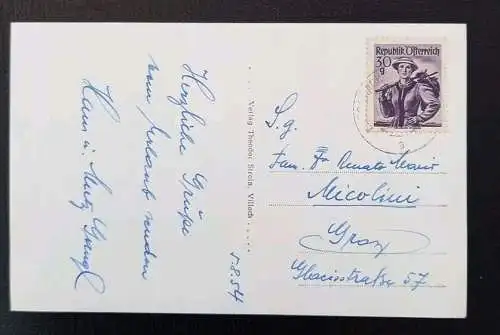 Herzliche Grüße
vom Urlaub senden
Hans u.
5.8.54
Verlag Theodor Strein, Villach
Republik Österreich
30
g
S. g.
Fam. Fr. Renate Maria
Nicolini
Graz
Glacisstraße 57